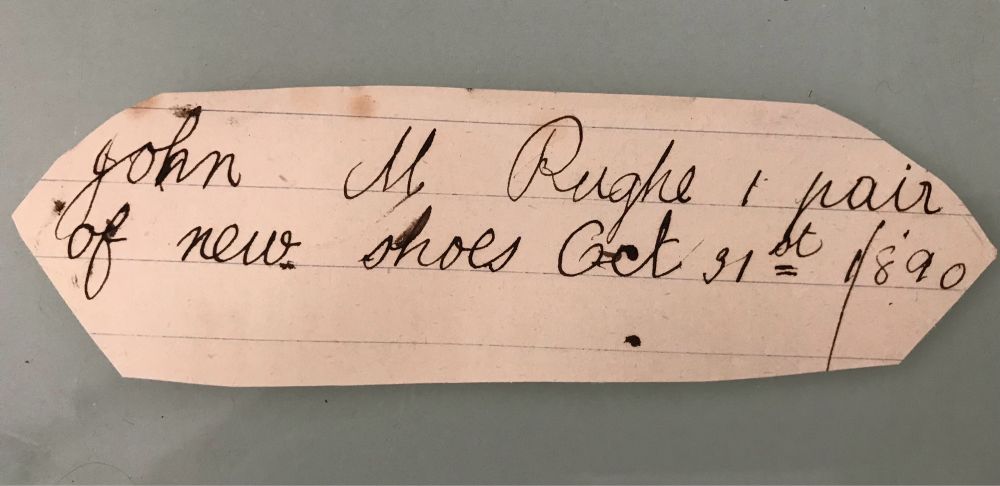 John M Rughe 1 pair
of new shoes Oct 31st 1890